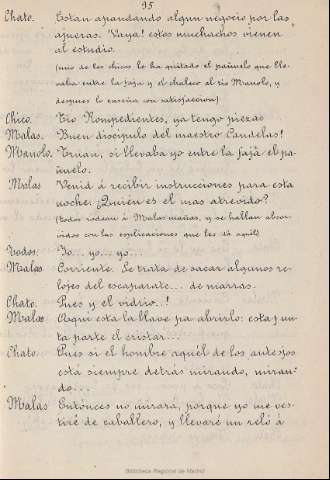 95
Chato. Están apandando algun negocio por las
afueras. Vaya! estos muchachos vienen
al estudio.
(uno de los chicos le ha quitado el pañuelo que lle-
vaba entre la faja y el chaleco al tio Manolo, y
despues lo enseña con satisfaccion)
Chico. Tio Rompedientes, ya tengo piezas
Malas. Buen discipulo del maestro Candelas!
Manolo. Truan, si llevaba yo entre la faja el pa-
ñuelo.
Malas Venid á recibir instrucciones para esta
noche: ¿Quien es el mas atrevido?
(todos rodean á Malas mañas, y se hallan absor-
vidos con las esplicaciones que les dá aquél)
Todos. Yo... yo... yo...
Malas Corriente. Se trata de sacar algunos re-
lojes del escaparate... de marras.
Chato. Pues y el vidrio..!
Malas Aqui esta la llave pa abrirlo: esta pun-
ta parte el cristar...
Chato. Pues si el hombre aquél de los anteojos
está siempre detrás mirando, miran-
do...
Malas Entónces no mirará, porque yo me ves-
tiré de caballero, y llevaré un reló á
Biblioteca Regional de Madrid